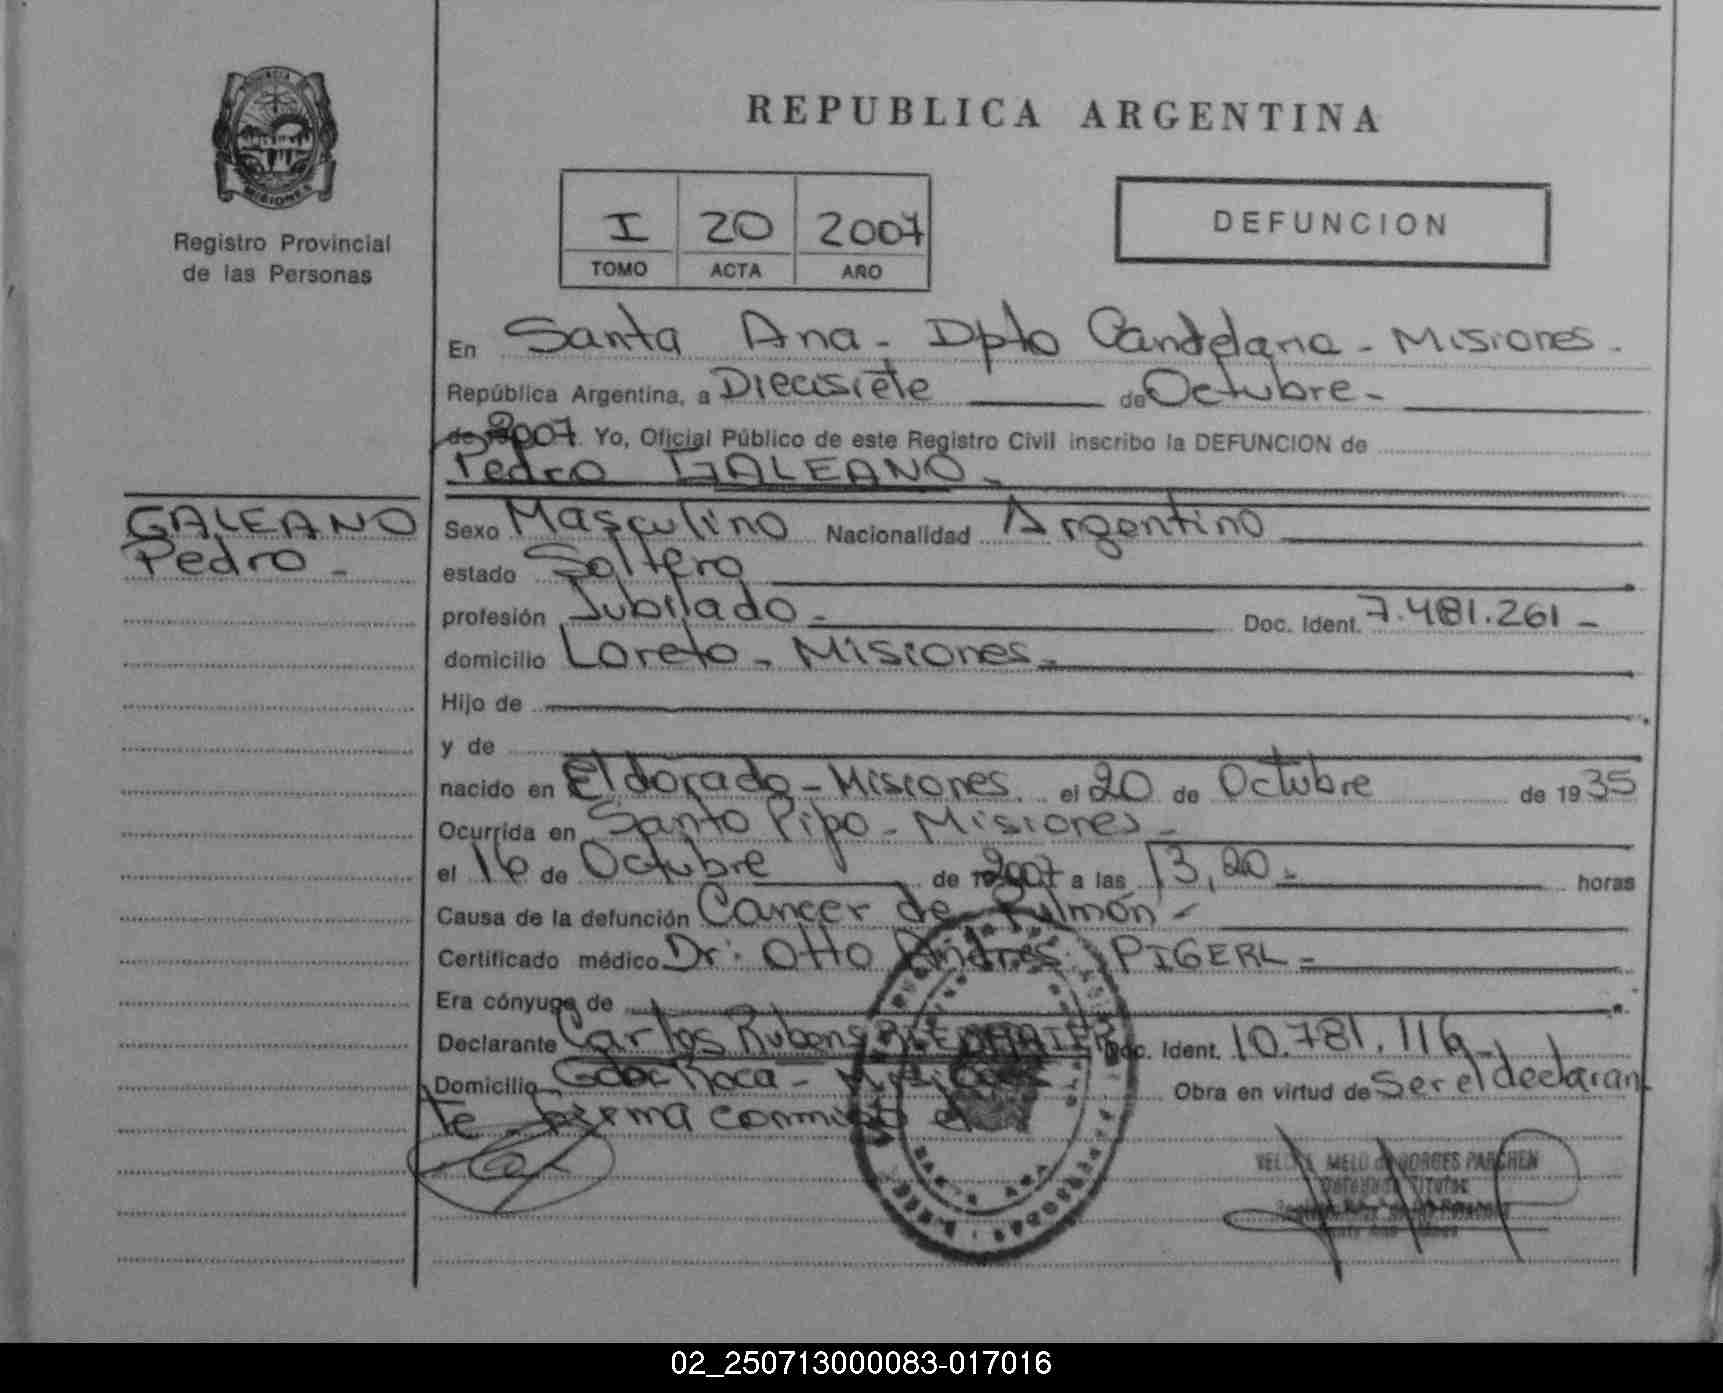 REPUBLICA ARGENTINA
PROVINCIA
MISIONES
Registro Provincial
de las Personas
I 20 2007
TOMO ACTA AÑO
DEFUNCION
En Santa Ana - Dpto Candelaria - Misiones.
República Argentina, a Diecisiete de Octubre -
de 2007. Yo, Oficial Público de este Registro Civil inscribo la DEFUNCION de
Pedro GALEANO -
GALEANO
Pedro -
Sexo Masculino Nacionalidad Argentino
estado Soltero
profesión Jubilado - Doc. Ident. 7.481.261 -
domicilio Loreto - Misiones -
Hijo de
y de
nacido en Eldorado - Misiones el 20 de Octubre de 1935
Ocurrida en Santo Pipo - Misiones -
el 16 de Octubre de 2007 a las 13,20 - horas
Causa de la defunción Cancer de Pulmón -
Certificado médico Dr: Otto Andres PIGERL -
Era cónyuge de
Declarante Carlos Rubens Doc. Ident. 10.781.116 -
Domicilio Gdor Roca - Obra en virtud de Ser el declaran
te - firma conmigo
MELO de BORGES PARCHEN
Delegada Titular
SANTA ANA
02_250713000083-017016